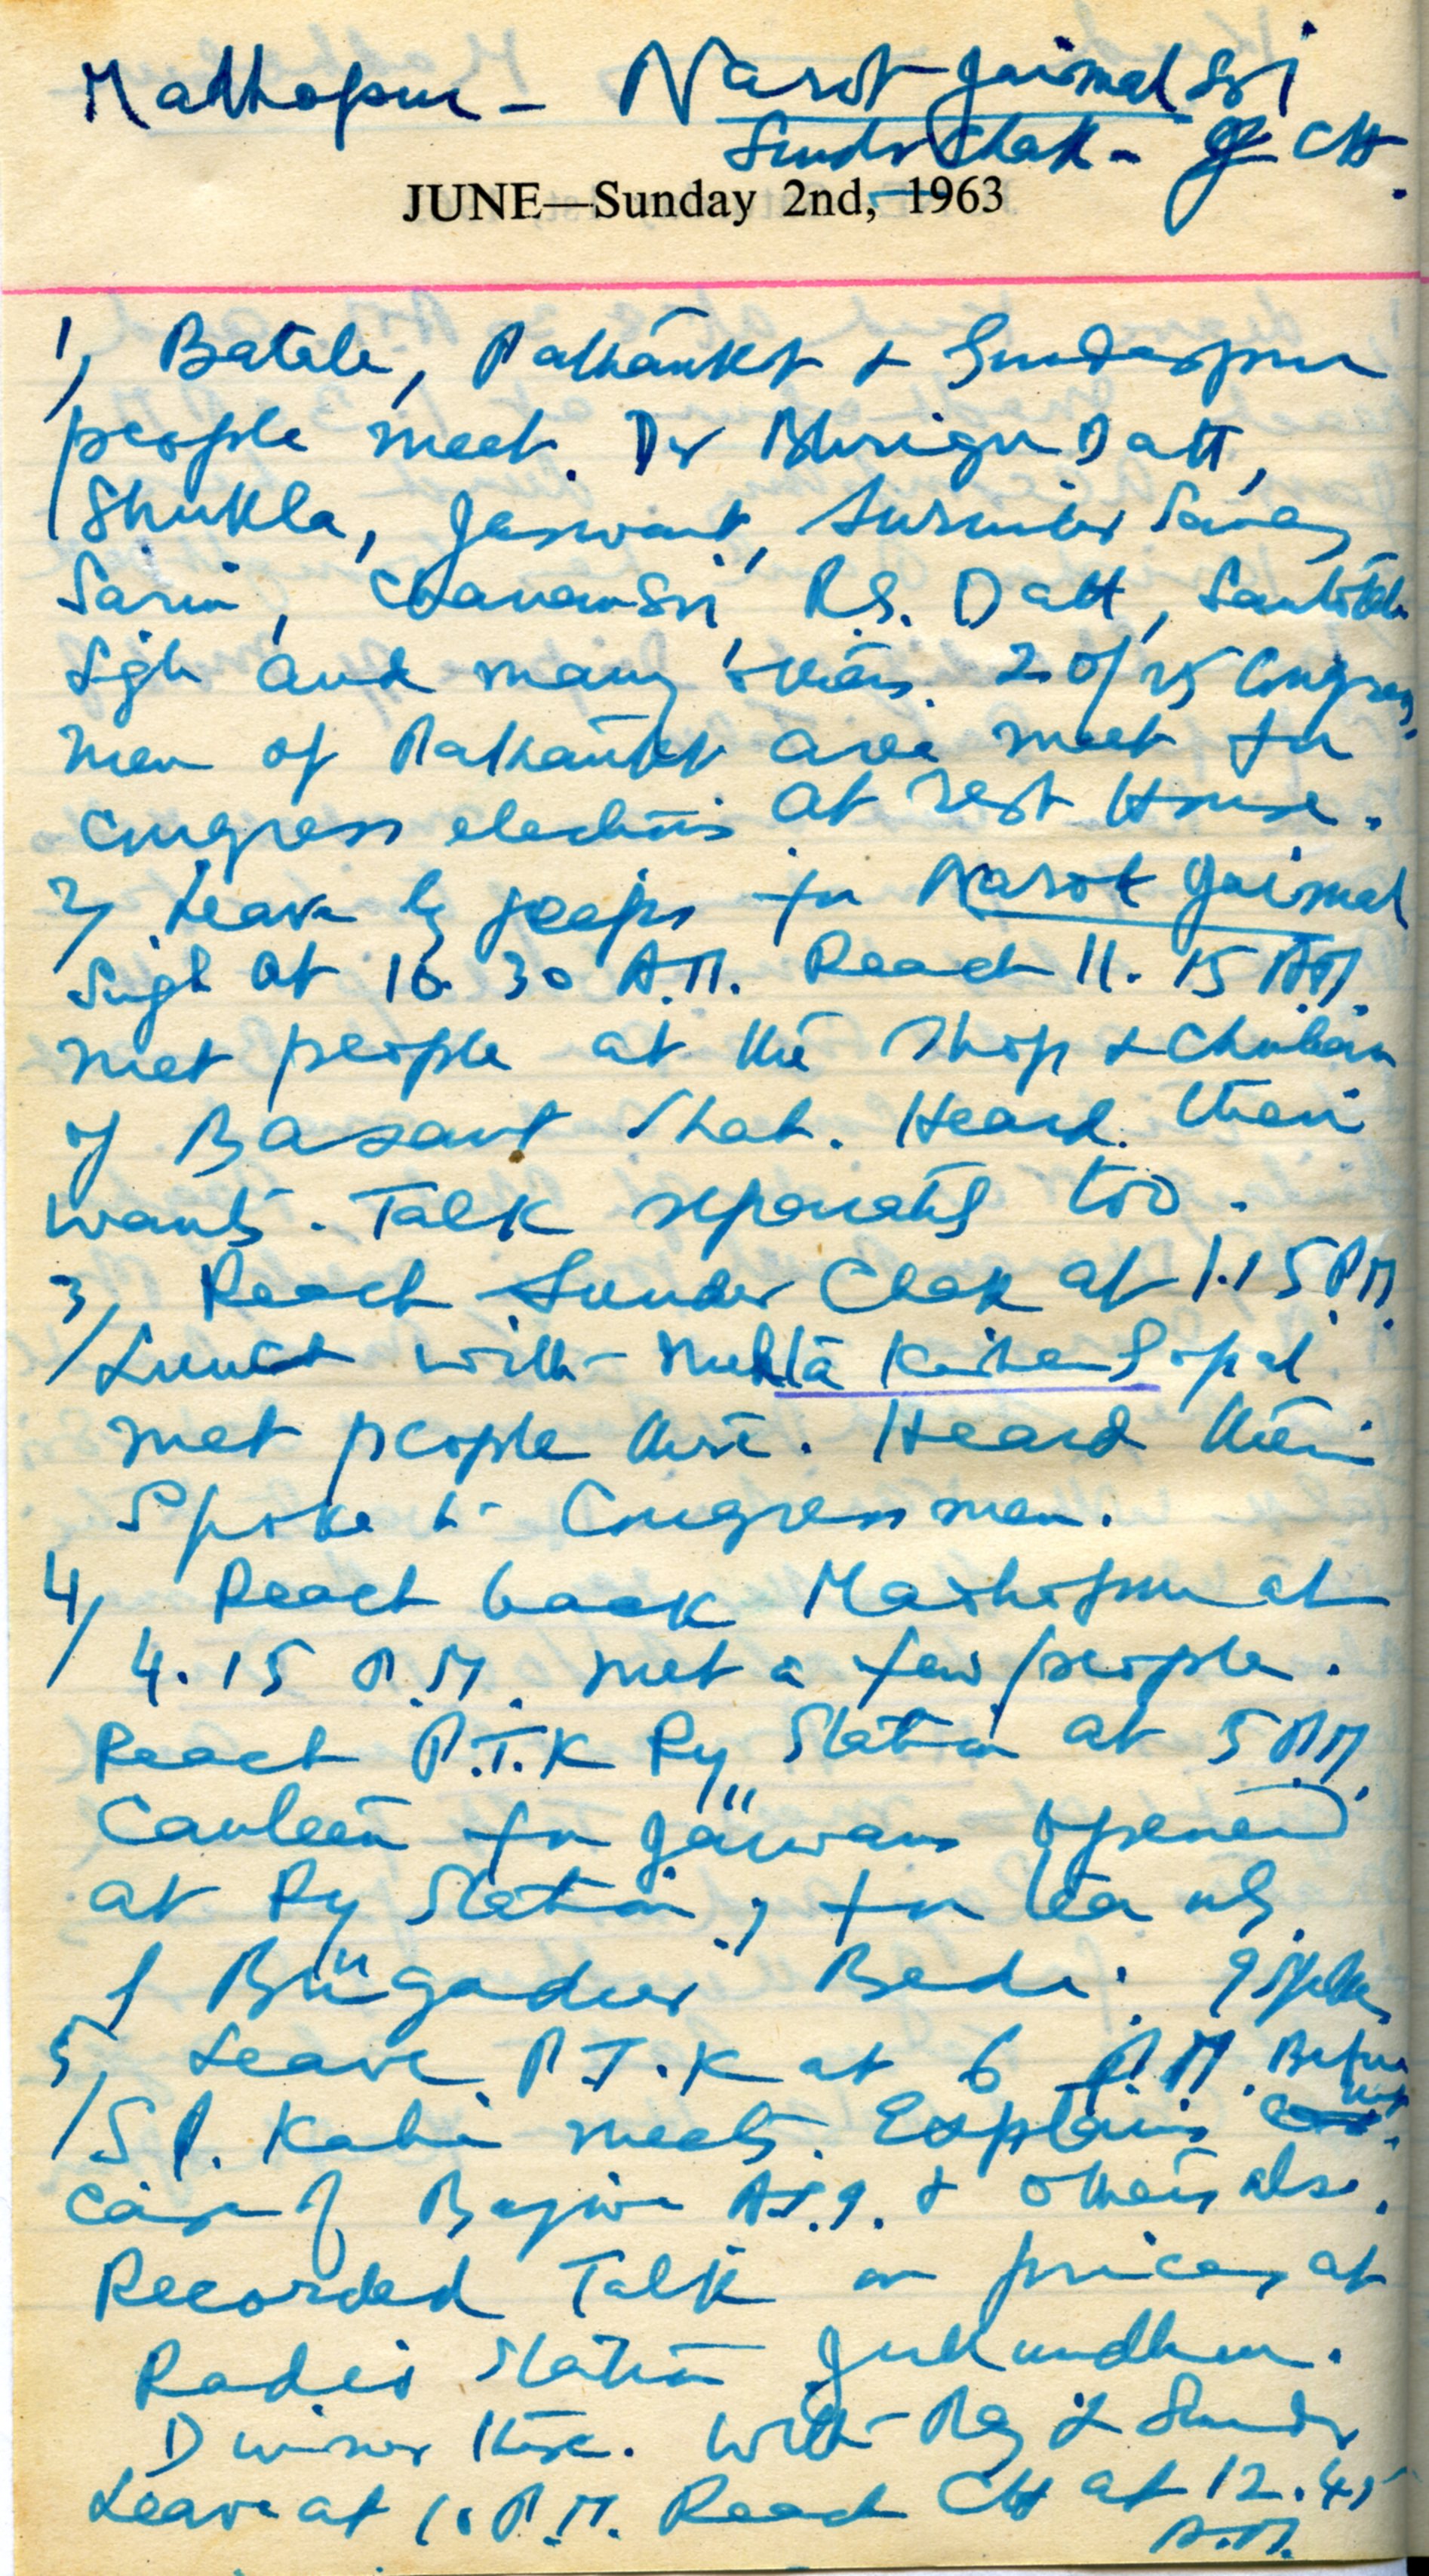 Madhopur - Narot Jaimal Sgi
Sunder Chak - CH.
JUNE—Sunday 2nd, 1963
1, Batala, Pathankt &
people meet. Dr Bhrigu Datt,
Shukla, Jaswant, Surinder
Sarin, R.S. Datt, Santokh
Sgh and many others. 20/25 Congress
men of Pathankt area meet for
Congress elections at rest House.
2, Leave by jeeps for Narot Jaimal
Singh at 10.30 A.M. Reach 11.15 A.M.
met people at the shop &
of Basant Shah. Heard their
wants. Talk separately too.
3, Reach Sunder Chak at 1.15 P.M.
Lunch with Mehta Kishen Gopal
met people there. Heard them
Spoke to Congress men.
4, Reach back Madhopur at
4.15 P.M. met a few people.
Reach P.T.K Ry Station at 5 P.M.
Canteen for Jawans opened
at Ry Station, for tea
of Brigadier Bedi. I spoke
5, Leave P.T.K at 6 P.M. Before
S.P. meets. Explains
case of Bajwa A.S.I. & others also.
Recorded Talk on prices at
Radio Station Jullundhur.
Dinner there. With &
Leave at 10 P.M. Reach CH at 12.45
A.M.